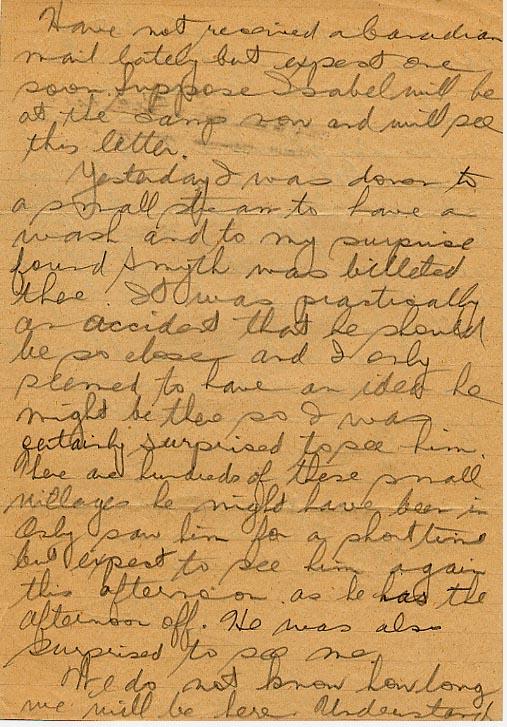 Have not received a Canadian
mail lately but expect one
soon. Suppose Isabel will be
at the camp now and will see
this letter.
Yestaday I was down to
a small stream to have a
wash and to my surprise
found Smyth was billeted
thee. It was practically
an accident that he should
be so close and I only
seemed to have an idea he
might be thee so I was
certainly surprised to see him.
There are hundreds of these small
villages he might have been in
Only saw him for a short time
but expect to see him again
this afternoon as he has the
afternoon off. He was also
surprised to see me.
We do not know how long
we will be here. Understand